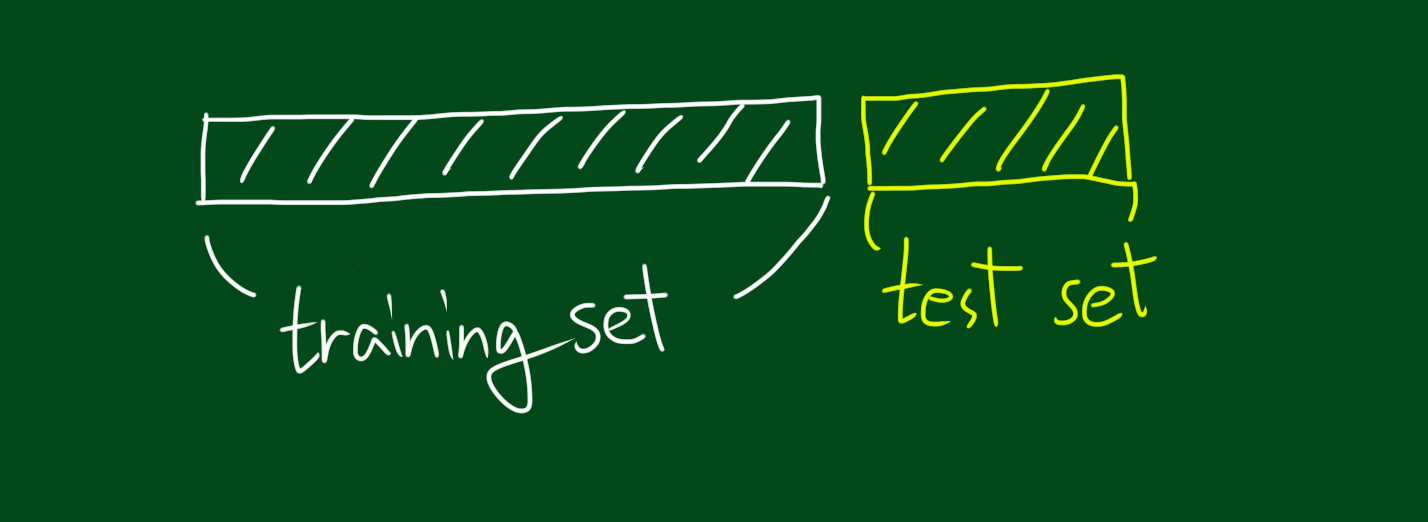 training set
test set